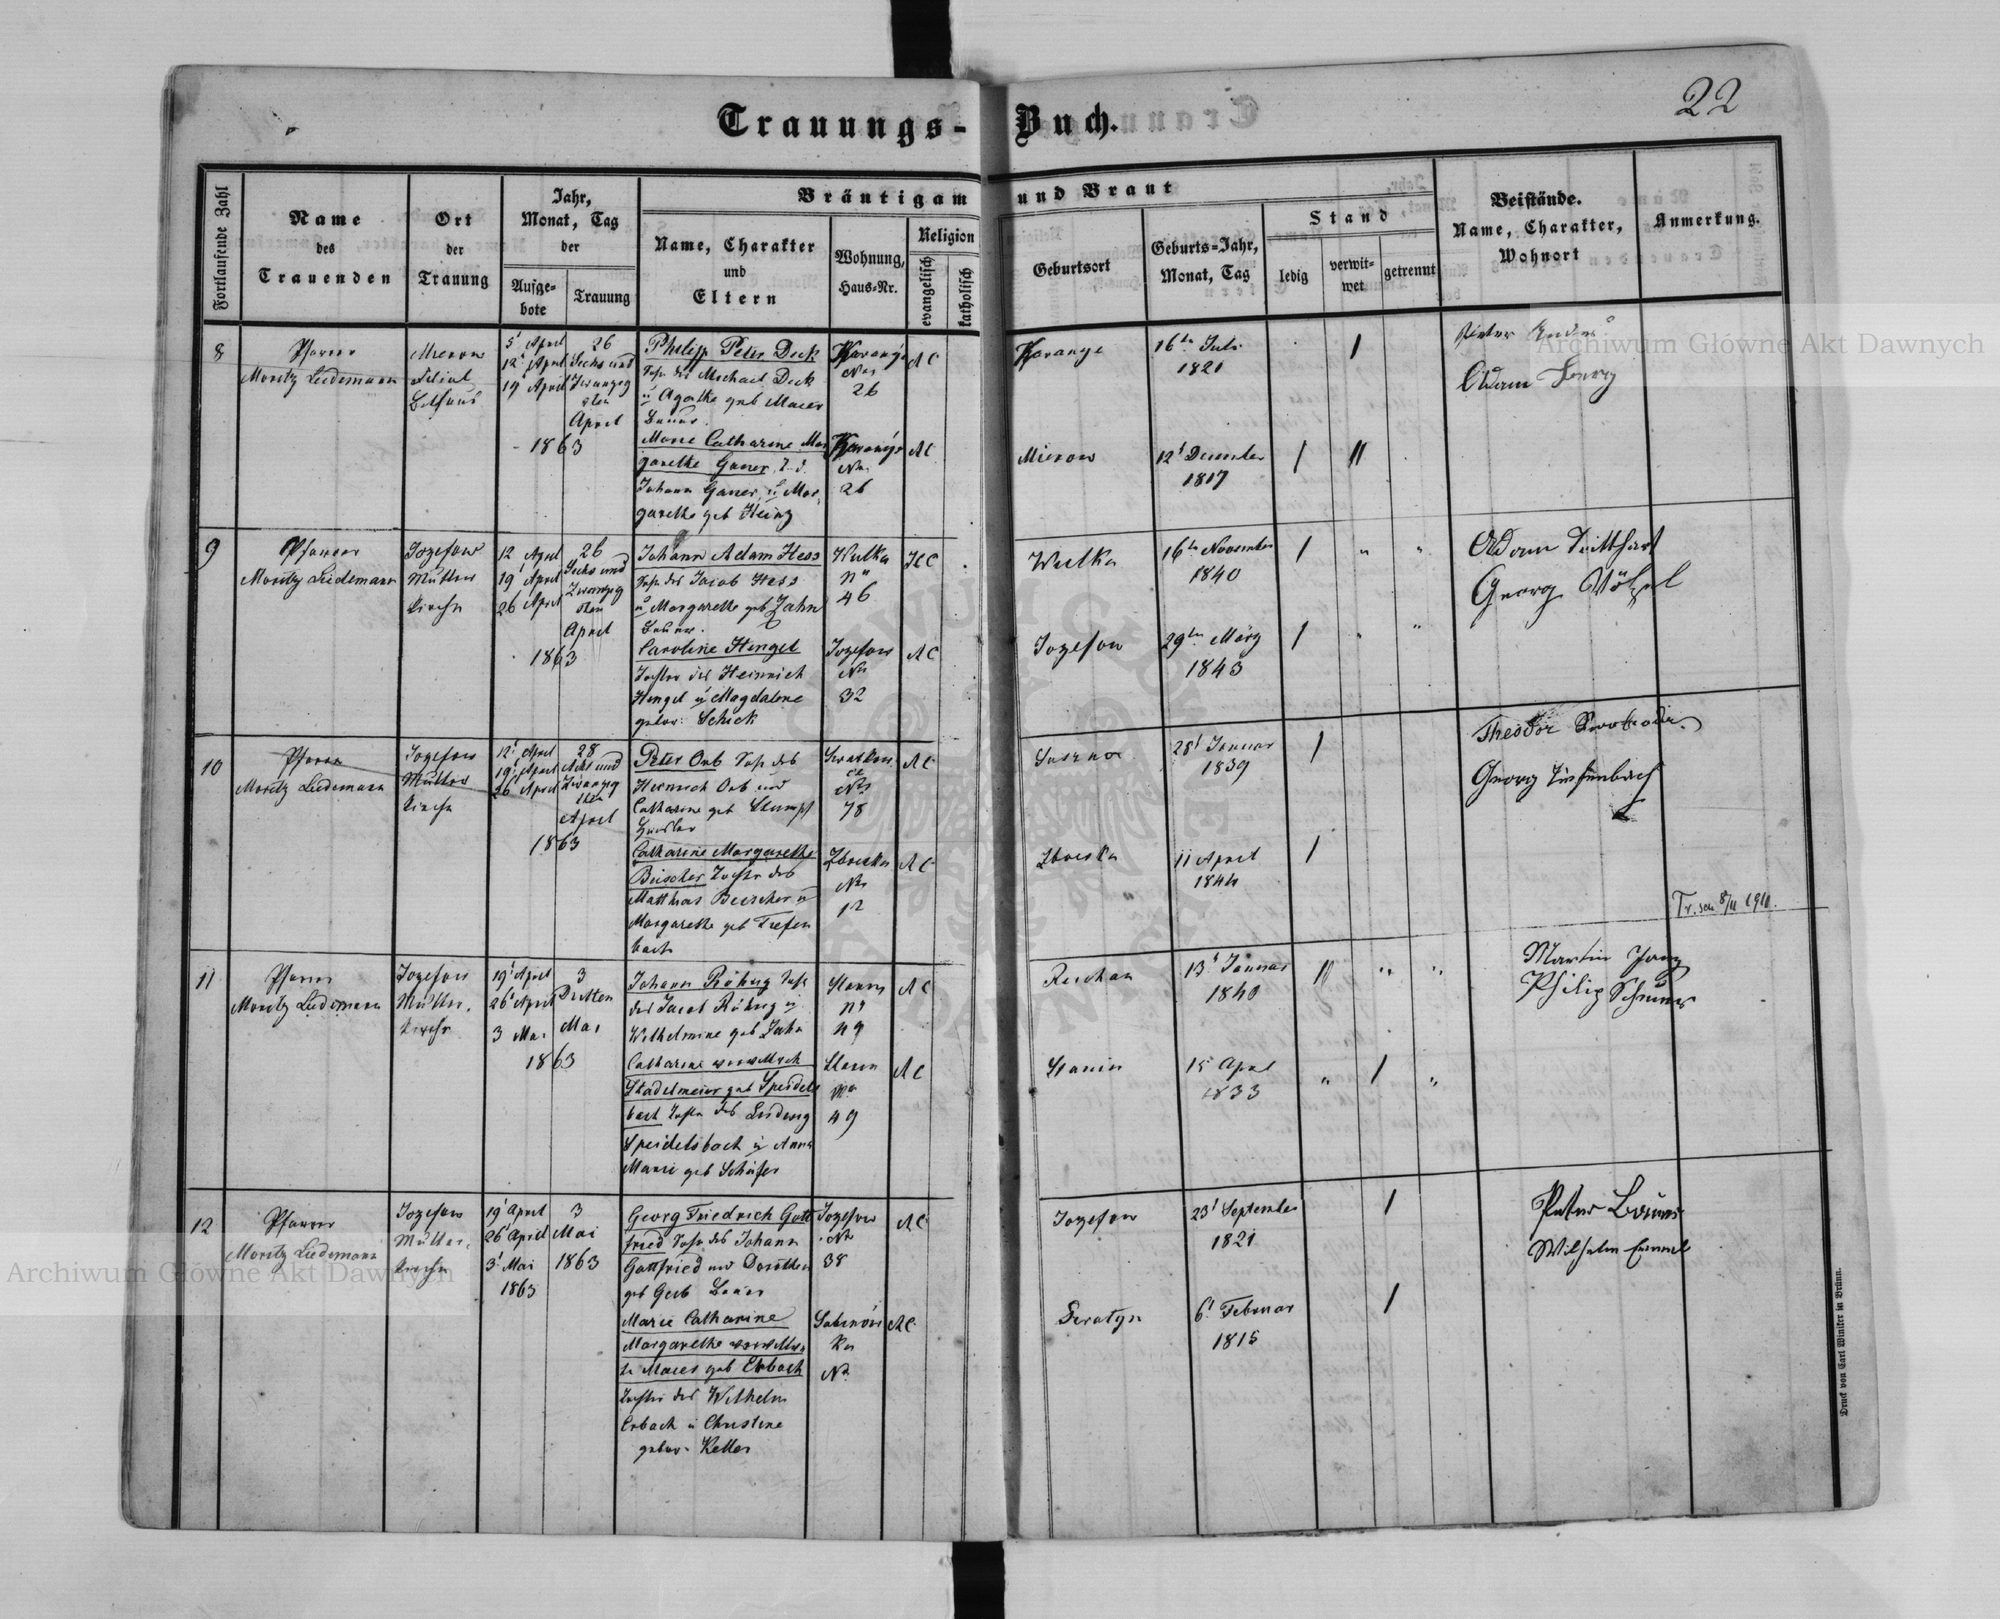 22
Trauungs-Buch.
Fortlaufende Zahl
Name
des
Trauenden
Ort
der
Trauung
Jahr,
Monat, Tag
der
Aufge-
bote
Trauung
Bräutigam und Braut
Name, Charakter
und
Eltern
Wohnung,
Haus-Nr.
Religion
evangelisch
katholisch
Geburtsort
Geburts-Jahr,
Monat, Tag
Stand
ledig
verwit-
wet
getrennt
Beistände.
Name, Charakter,
Wohnort
Anmerkung.
8
Pfarrer
Moritz Luedemann
Mierow
Filial
Bethaus
5t April
12t April
19t April
26
Sechs und
Zwanzig
sten
April
1863
Philipp Peter Deck
Sohn des Michael Deck
u Agathe geb Maier
Bauer.
Karanye
Nro
26
AC
Karanye
16ten Juli
1821
Marie Catharine Mar
garethe Ganer, T. d.
Johann Ganer, u Mar,
garethe geb Heinz
Karanye
Nro
26
AC
Mierow
12t December
1817
Adam
9
Pfarrer
Moritz Luedemann
Jozefow
Mutter
kirche
12 April
19t April
26 April
26
Sechs und
Zwanzig
sten
April
1863
Johann Adam Hess
Sohn des Jacob Hess
u Margarethe geb Zahn
Bauer.
Wulka
No
46
HC
Wulka
16ten November
1840
Caroline Hengel
Tochter des Heinrich
Hengel u Magdalene
gebor: Schick
Jozefow
Nro
32
AC
Jozefow
29ten März
1843
Adam Tritthart
Georg Völpel
10
Pfarrer
Moritz Luedemann
Jozefow
Mutter
kirche
12t April
19t April
26t April
28
Acht und
Zwanzig
sten
April
1863
Peter Orb Sohn des
Heinrich Orb und
Catharine geb Stumpf
Nro
78
AC
28t Januar
1839
Catharine Margarethe
Beischer Tochter des
Matthias Beischer u
Margarethe geb Tiefen
bach
Nro
12
AC
11 April
1844
Theodor
Georg Tiefenbach
Tr. sch. 8/11 1911.
11
Pfarrer
Moritz Luedemann
Jozefow
Mutter,
kirche
19t April
26t April
3 Mai
3
Dritten
Mai
1863
Johann Röhrig Sohn
des Jacob Röhrig u
Wilhelmine geb Jahn
Stanin
No
49
AC
Reichau
13t Januar
1840
Catharine verwittwete
Stadelmeier geb Speidels
bach Tochter des Ludwig
Speidelsbach u Anna
Marie geb Schäfer
Stanin
No
49
AC
Stanin
15 April
1833
Martin Jang
Philip
12
Pfarrer
Moritz Luedemann
Jozefow
Mutter,
kirche
19t April
26t April
3t Mai
1863
3
Mai
1863
Georg Friedrich Gott
fried Sohn des Johann
Gottfried und Dorothea
geb Gerb Bauer
Jozefow
No
38
AC
Jozefow
23t September
1821
Marie Catharine
Margarethe verwittwe
te Maier geb Erbach
Tochter des Wilhelm
Erbach u Christine
gebor. Keller
Sabinow
ka
No
AC
Seratyn
6t Februar
1815
Peter Bauer
Wilhelm Emmel
Druck von Carl Winiker in Brünn.
Archiwum Główne Akt Dawnych
Archiwum Główne Akt Dawnych